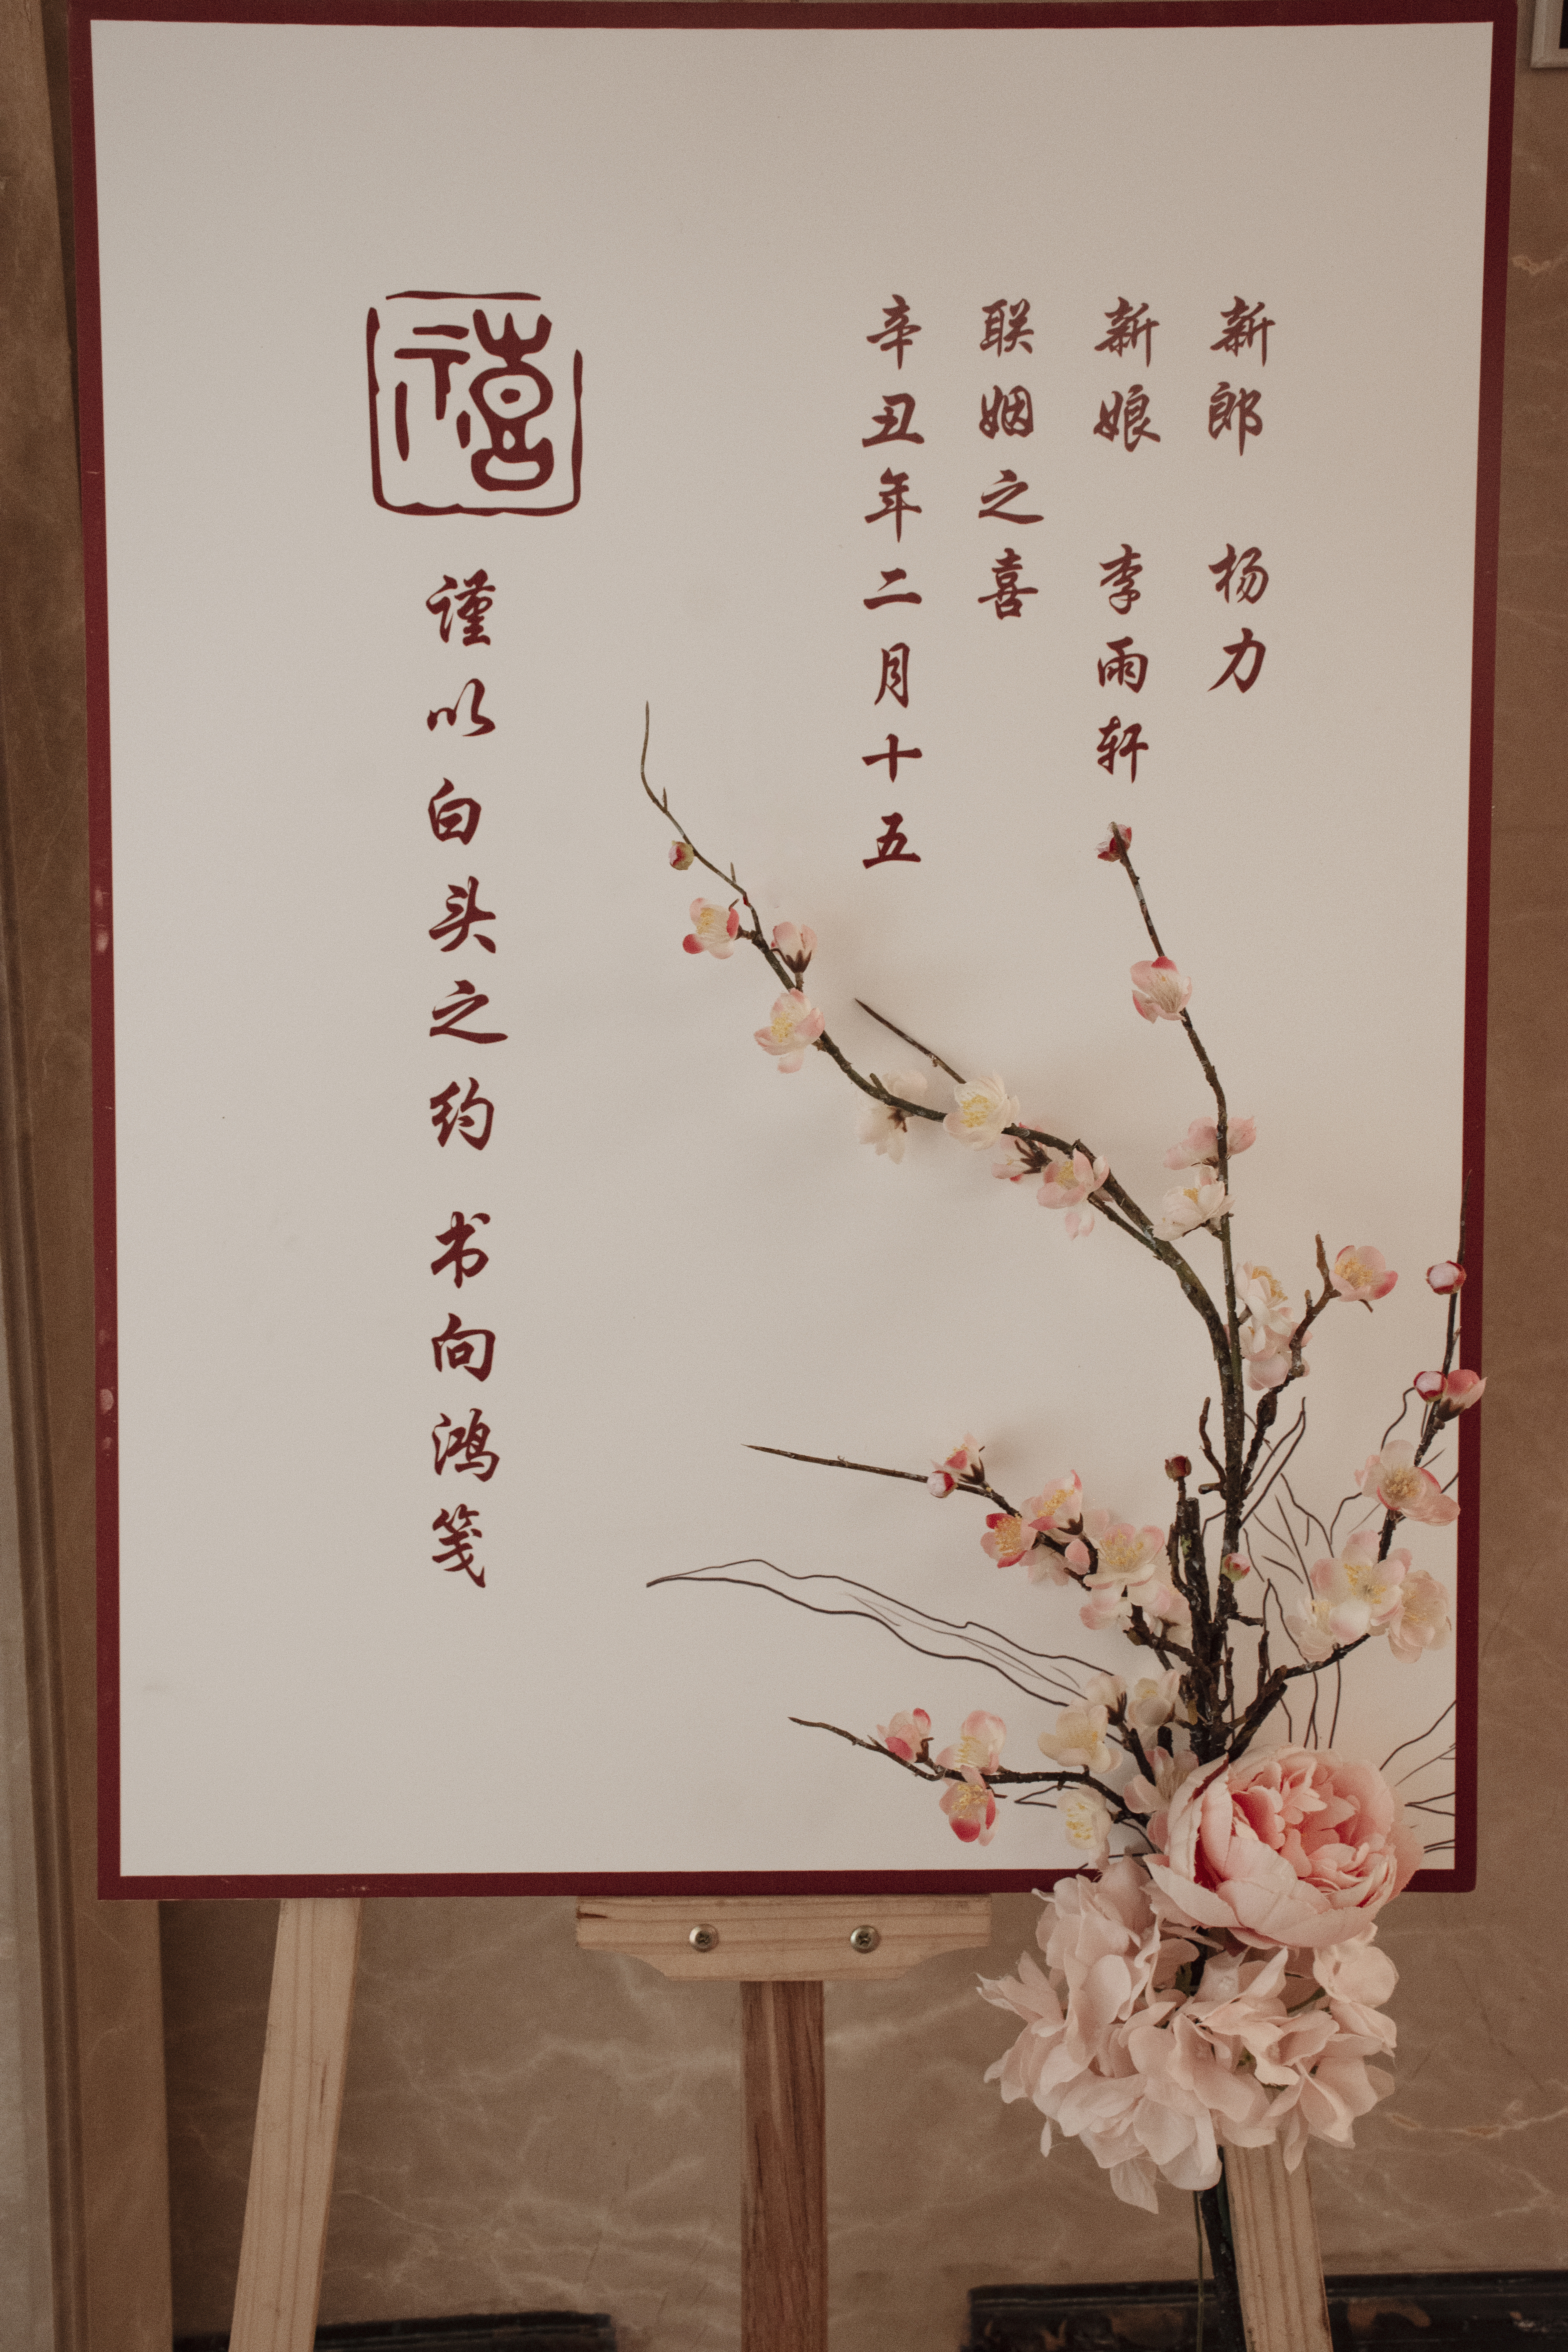 新郎 杨力
新娘 李雨轩
联姻之喜
辛丑年二月十五
禧
谨以白头之约 书向鸿笺